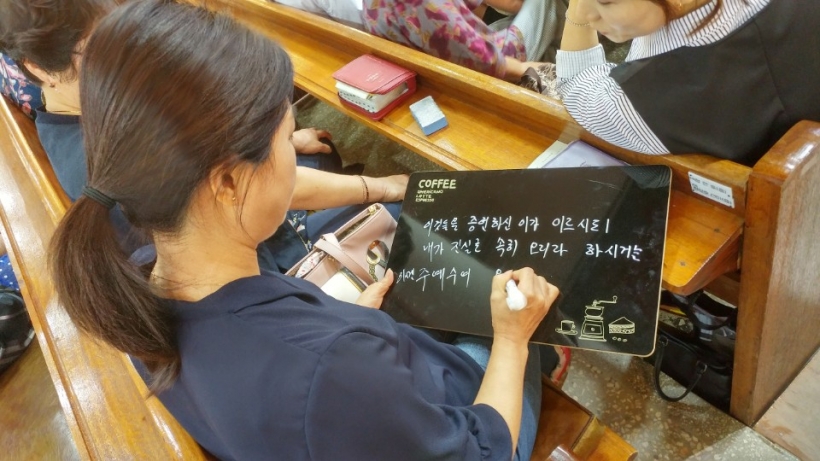 COFFEE
AMERICANO
LATTE
ESPRESSO
이것들을 증언하신 이가 이르시되
내가 진실로 속히 오리라 하시거늘
아멘 주 예수여